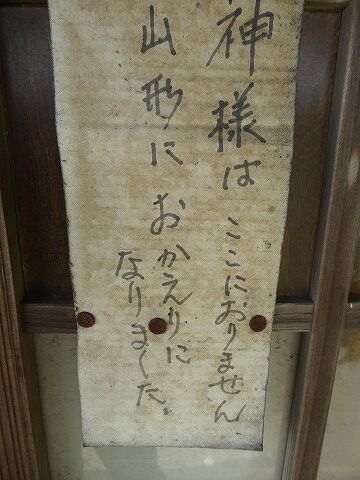 神様はここにおりません
山形におかえりに
なりました。